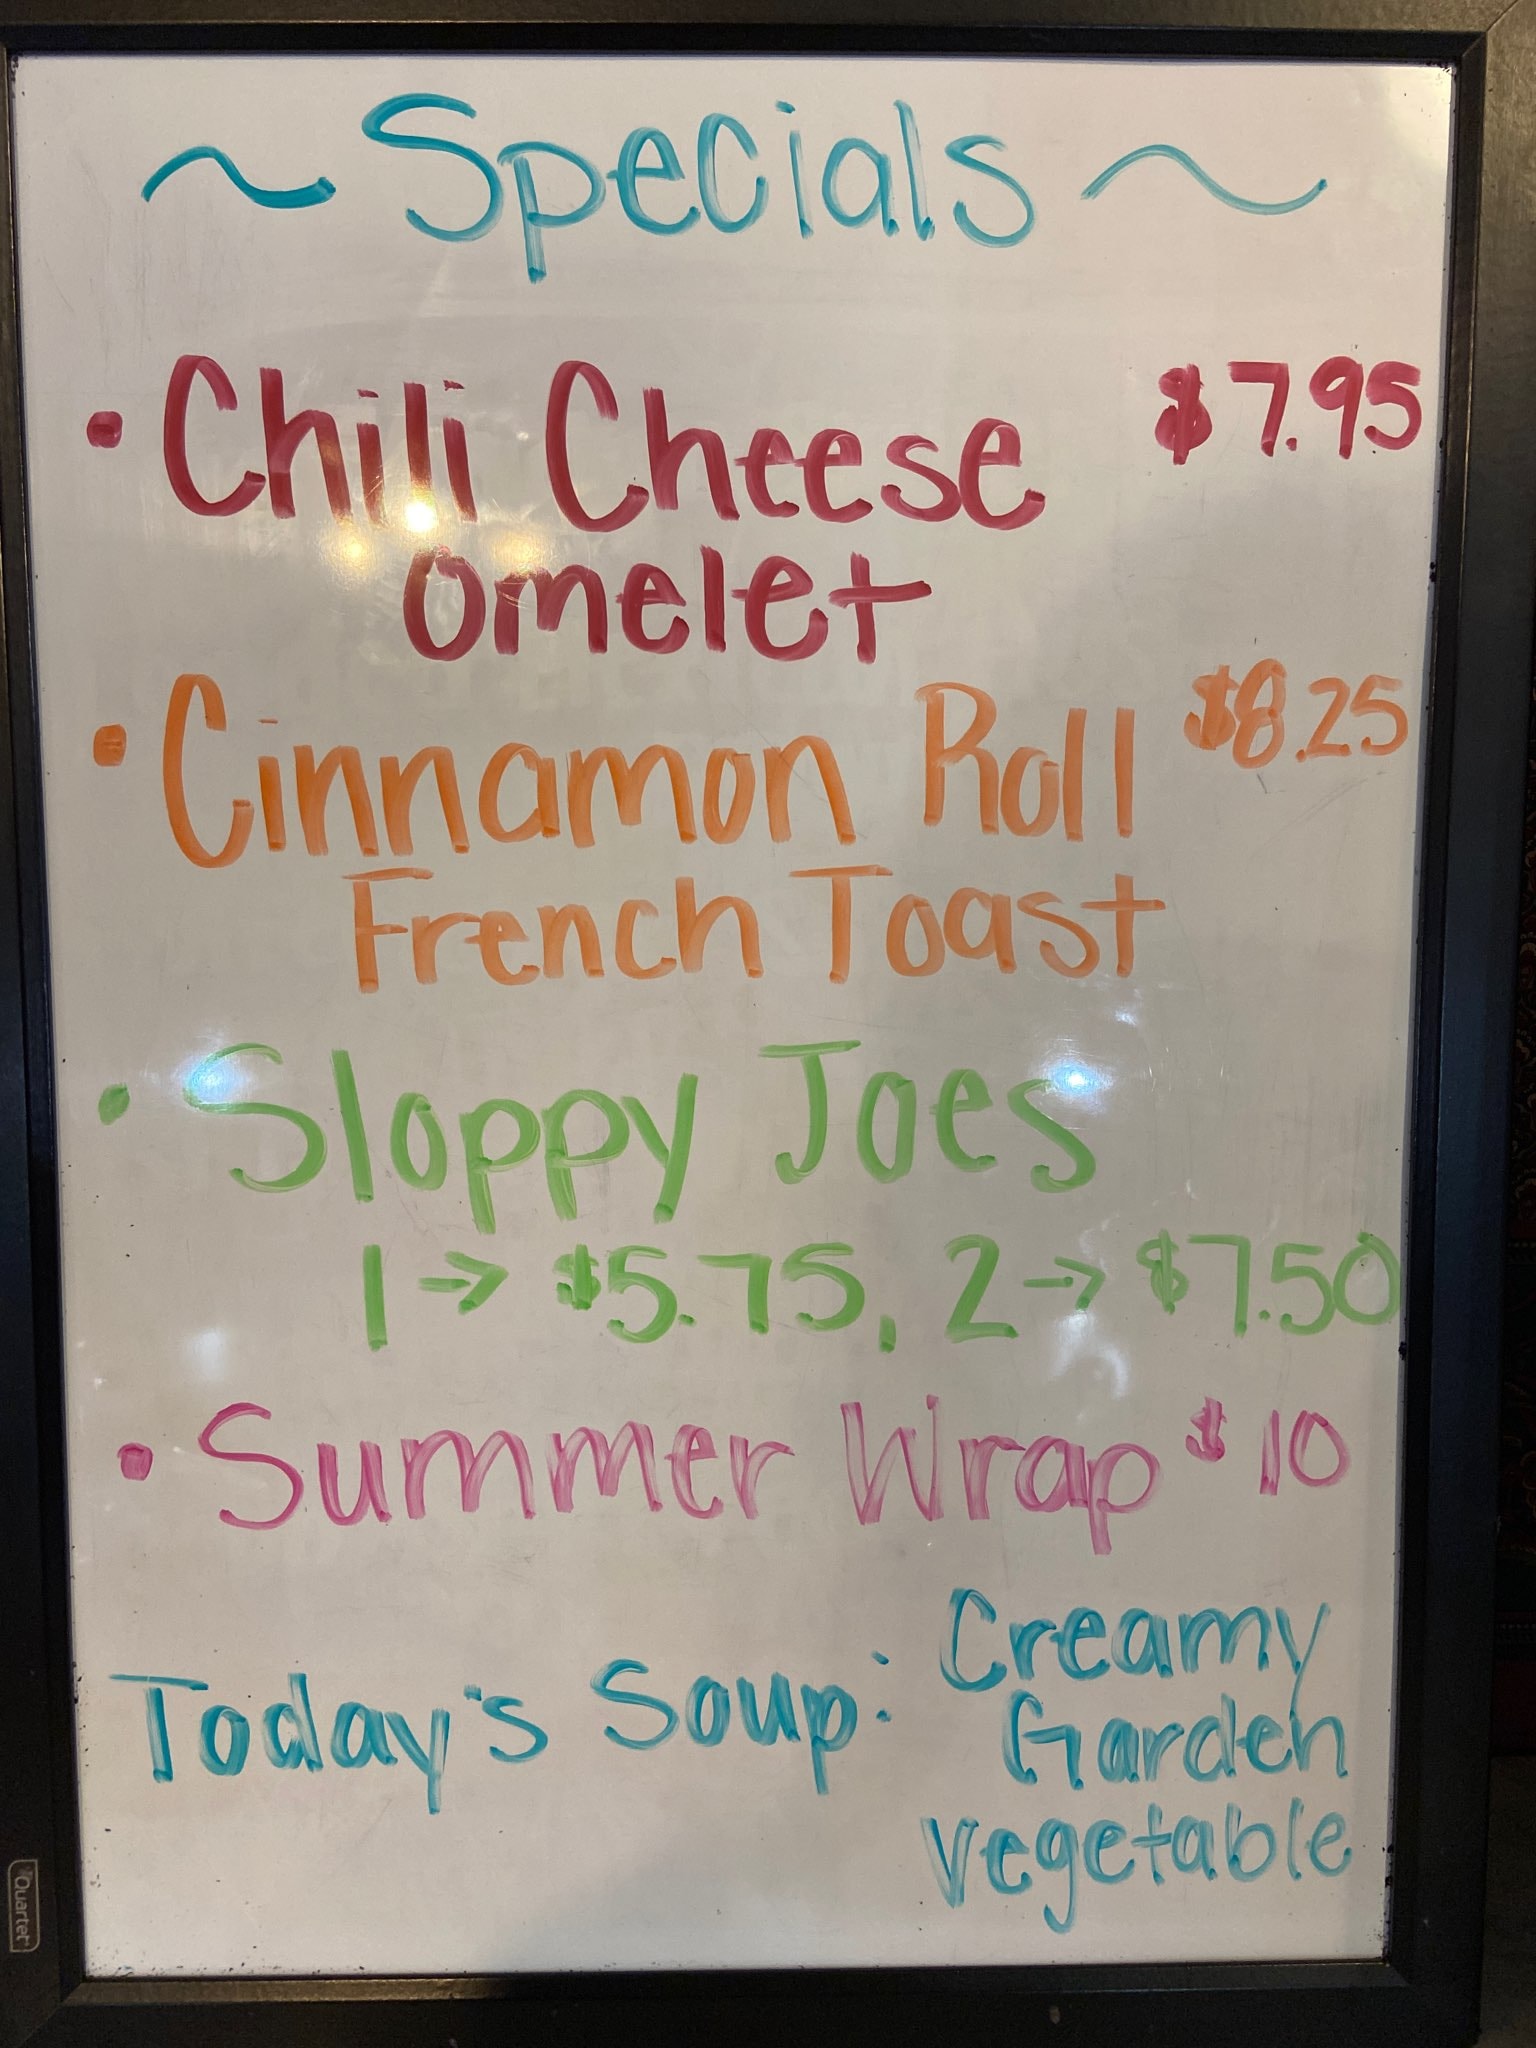 ~ Specials ~
• Chili Cheese $7.95
omelet
• Cinnamon Roll $8.25
French Toast
• Sloppy Joes
1 → $5.75, 2 → $7.50
• Summer Wrap $10
Today's Soup: Creamy
Garden
vegetable
Quartet